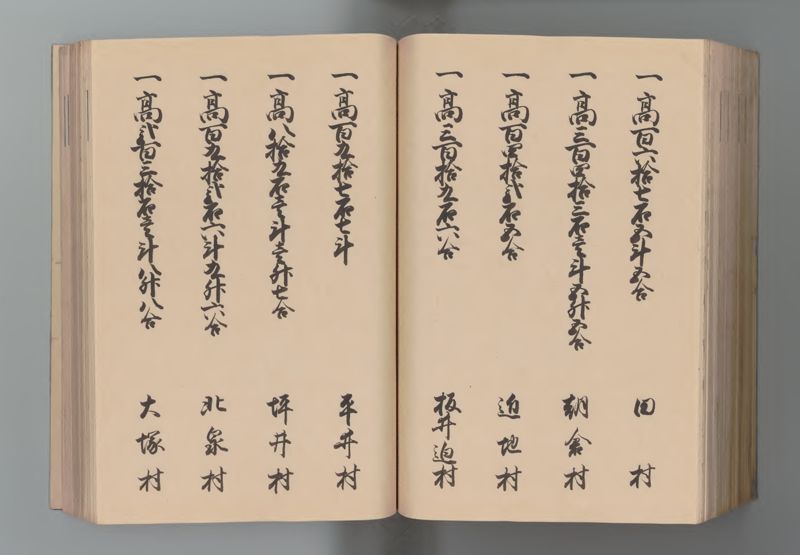 一高百六拾七石五斗五合　田村
一高三百四拾三石壱斗五升五合　朝倉村
一高百四拾弐石五合　迫地村
一高三百拾九石六合　板井迫村
一高百九拾七石七斗　平井村
一高八拾九石壱斗壱升七合　坪井村
一高百九拾弐石六斗九升六合　北泉村
一高弐百三拾石壱斗八升八合　大塚村